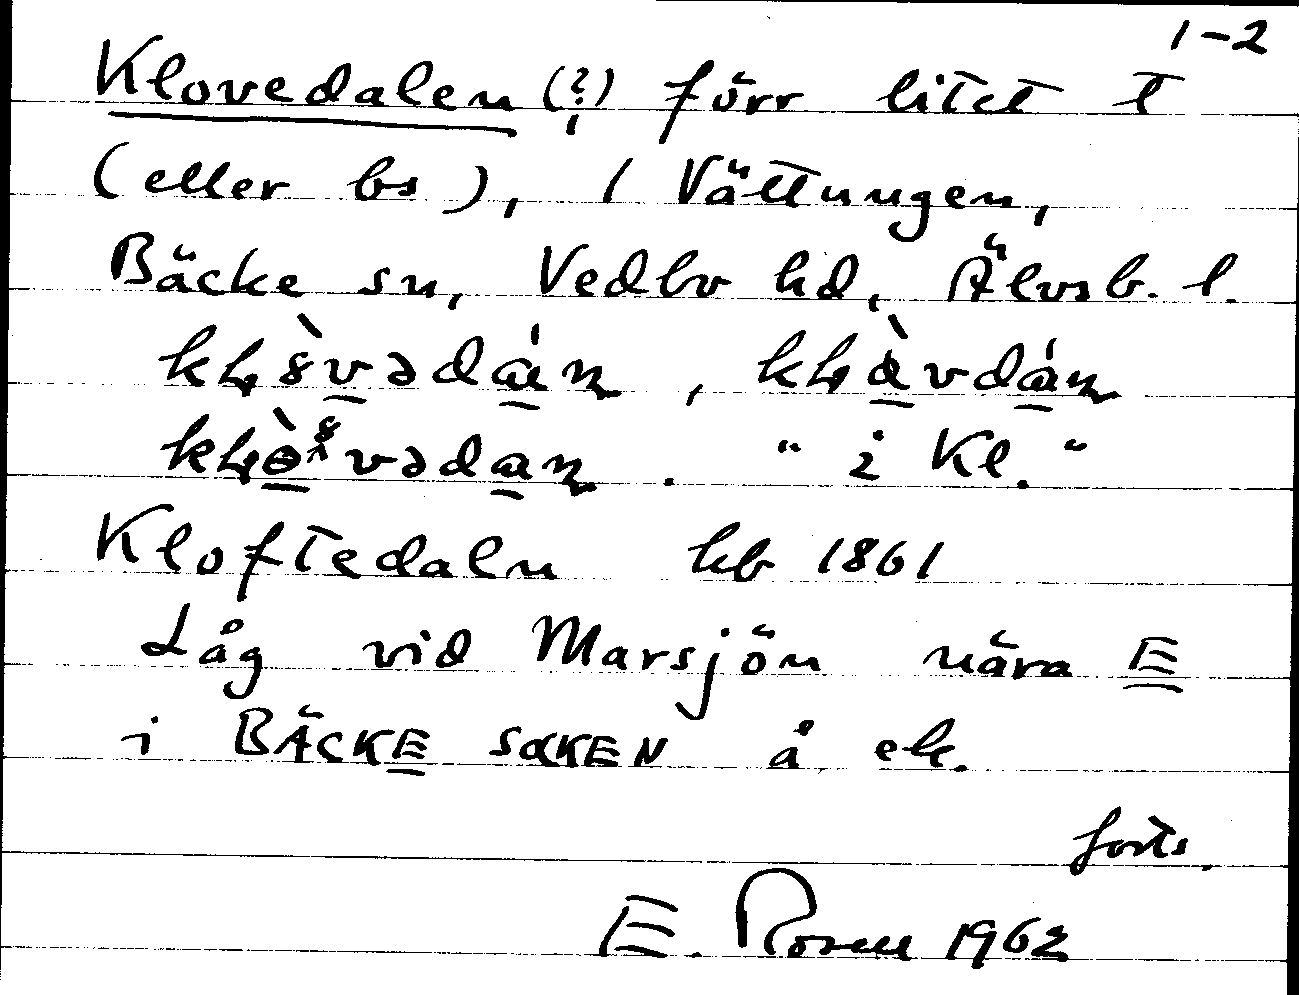 1-2
Klovedalen (?), förr litet t
(eller bs), 1 Vättungen,
Bäcke sn, Vedbo hd, Älvsb. l.
"i Kl."
Kloftedaln hb 1861
Låg vid Marsjön nära E
i BÄCKE SOCKEN å ek.
forts.
E. Rosell 1962